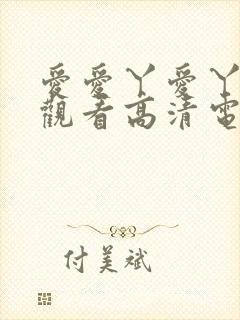 愛愛丫愛丫
觀看高清電
付美斌